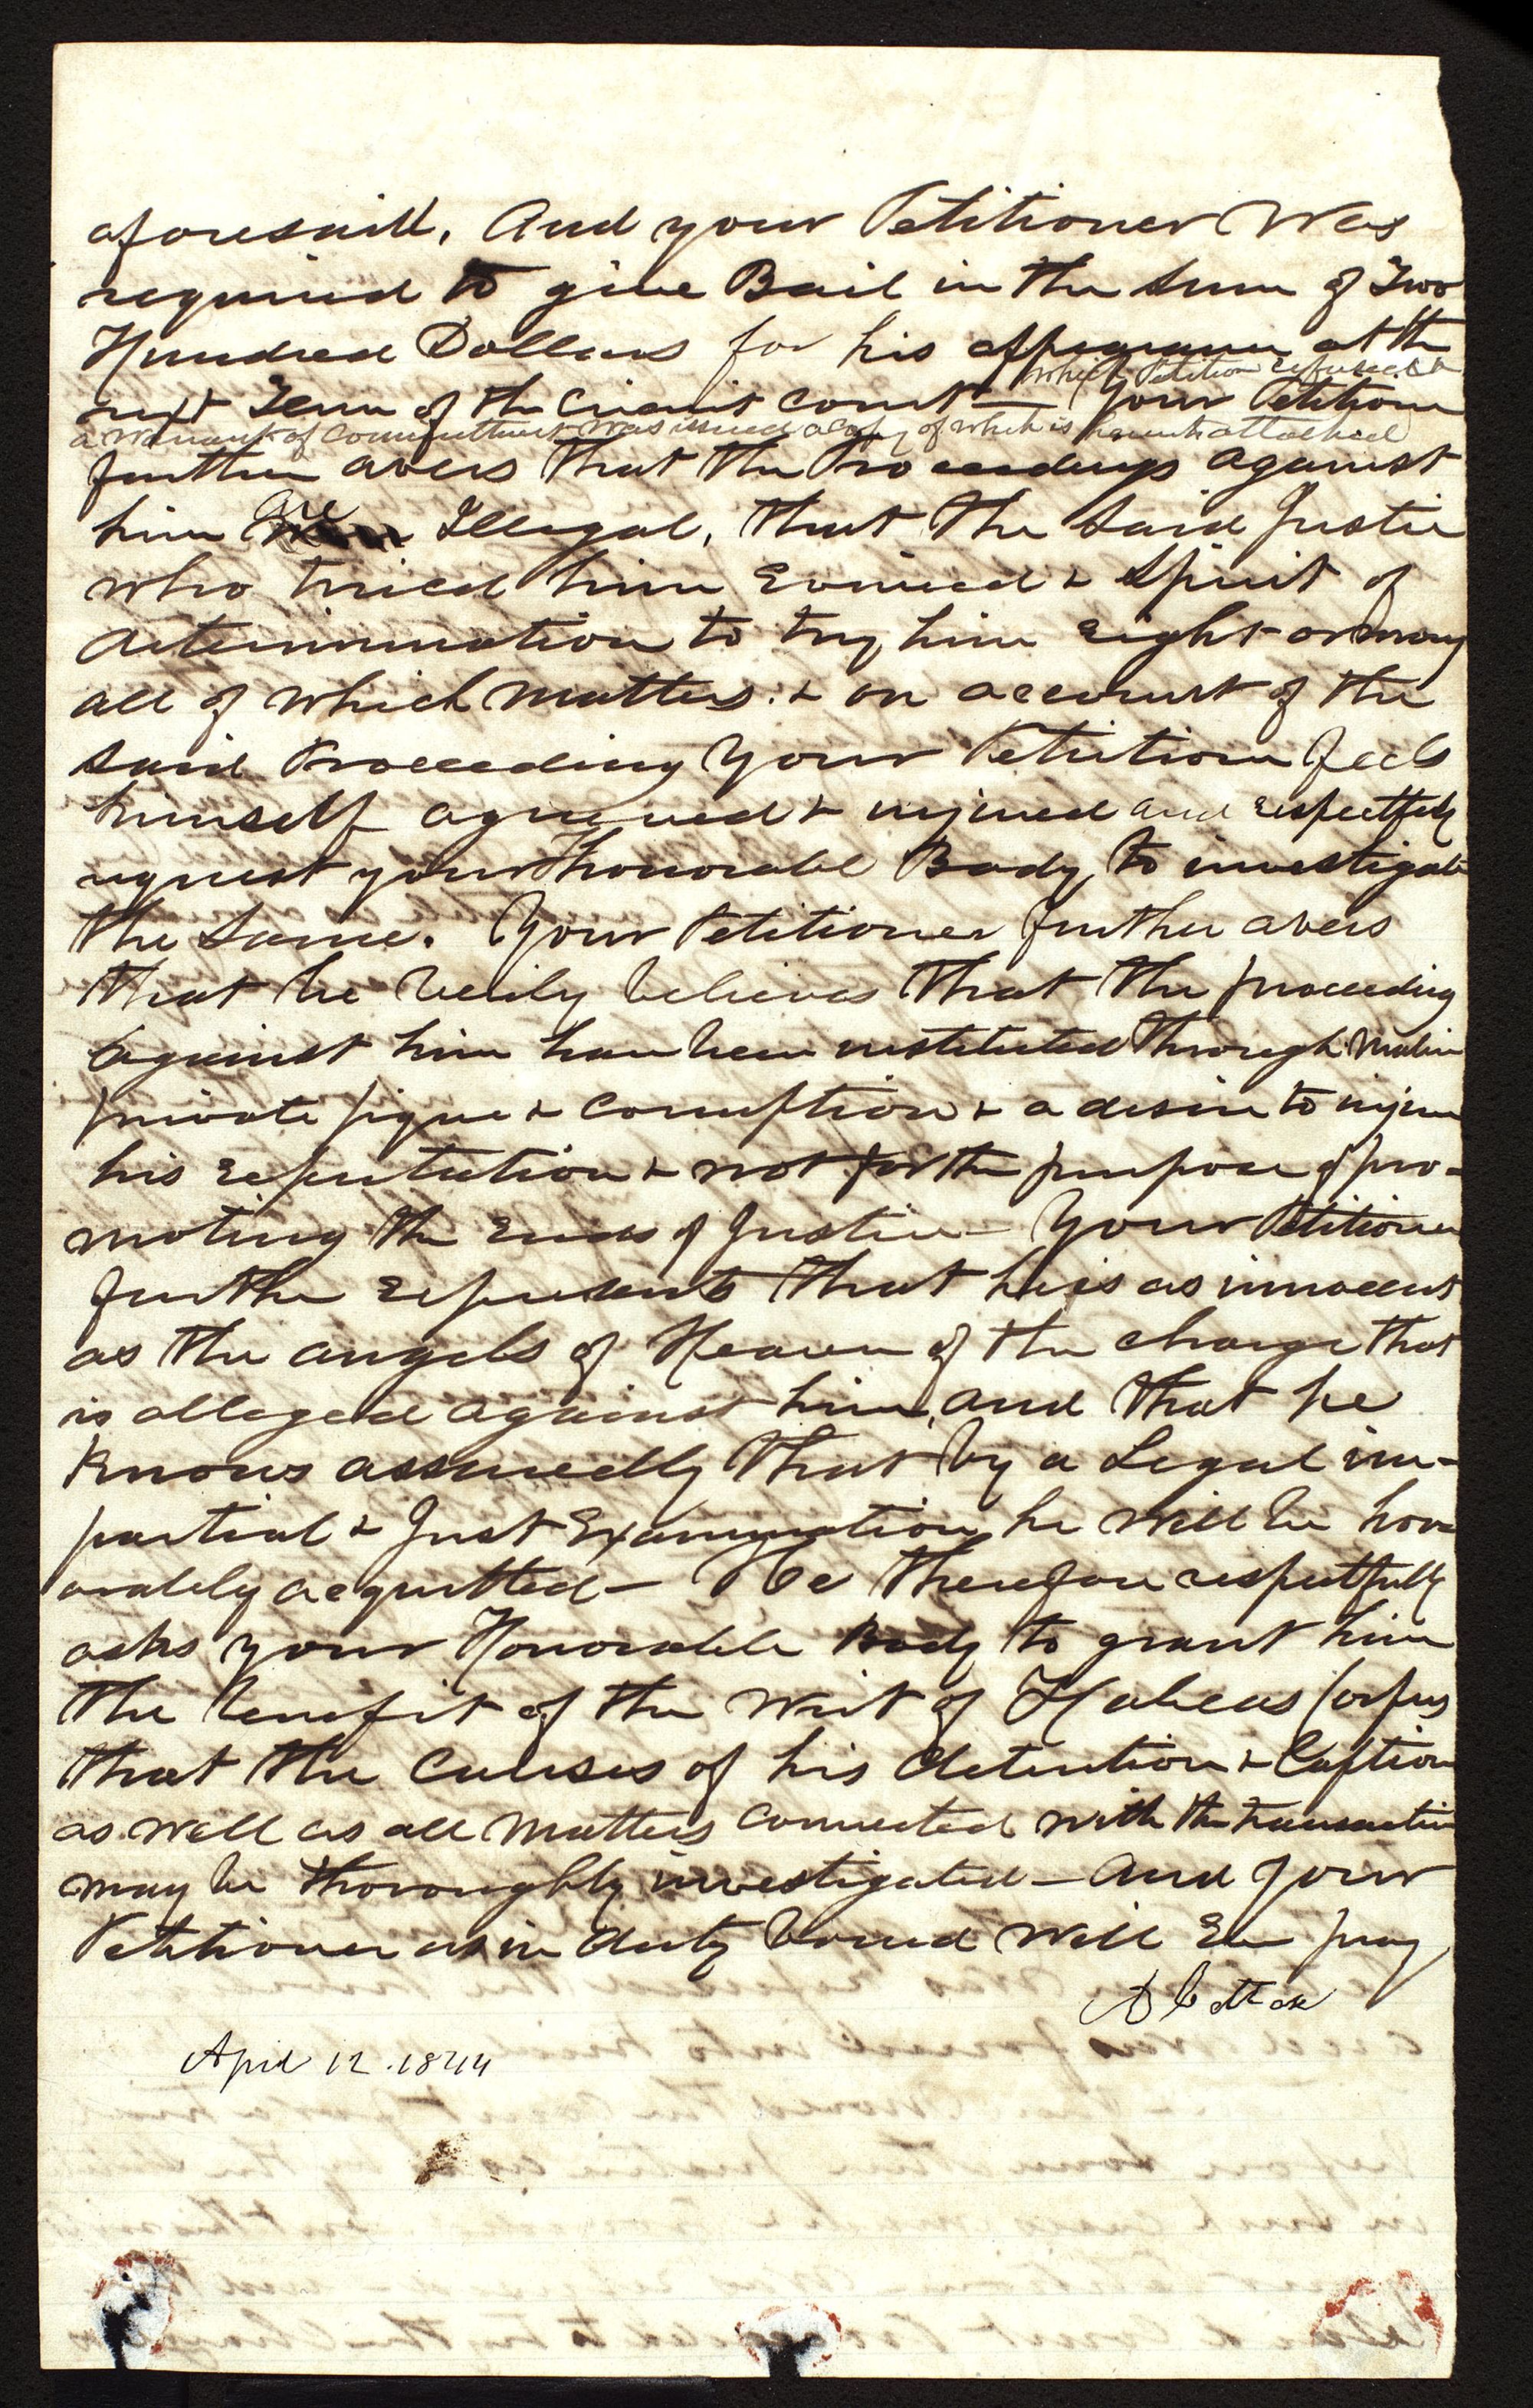 aforesaid, And your Petitioner Was
required to give Bail in the Sum of Two
Hundred Dollars for his appearance at the
which Petition refused &
next Term of the Circuit court — Your Petitioner
a warrant of committment was issued a copy of which is herewith attached
further avers that the Proceedings against
him are Illegal, that the Said Justice
who tried him Evinced a Spirit of
determination to try him right or wrong
all of which matters. & on account of the
Said Proceeding Your Petitioner feels
himself agrieved & injured and respectfully
request your Honorable Body, to investigate
the Same. Your Petitioner further avers
that he verily believes that the proceeding
against him have been instituted through malice
private pique & corruption & a desire to injure
his reputation & not for the purpose of pro-
moting the Ends of Justice — Your Petitioner
further represents that he is as innocent
as the angels of Heaven of the charge that
is alleged against him, and that he
Knows assuredly that by a Legal im-
partial & Just Examination he will be hon-
orably acquitted — He therefore respectfully
asks your Honorable Body to grant him
the benefit of the writ of Habeas Corpus
that the Causes of his detention & Caption
as well as all Matters connected with the transaction
may be thoroughly investigated — and your
Petitioner as in duty bound Will Ever pray
A
April 12. 1844